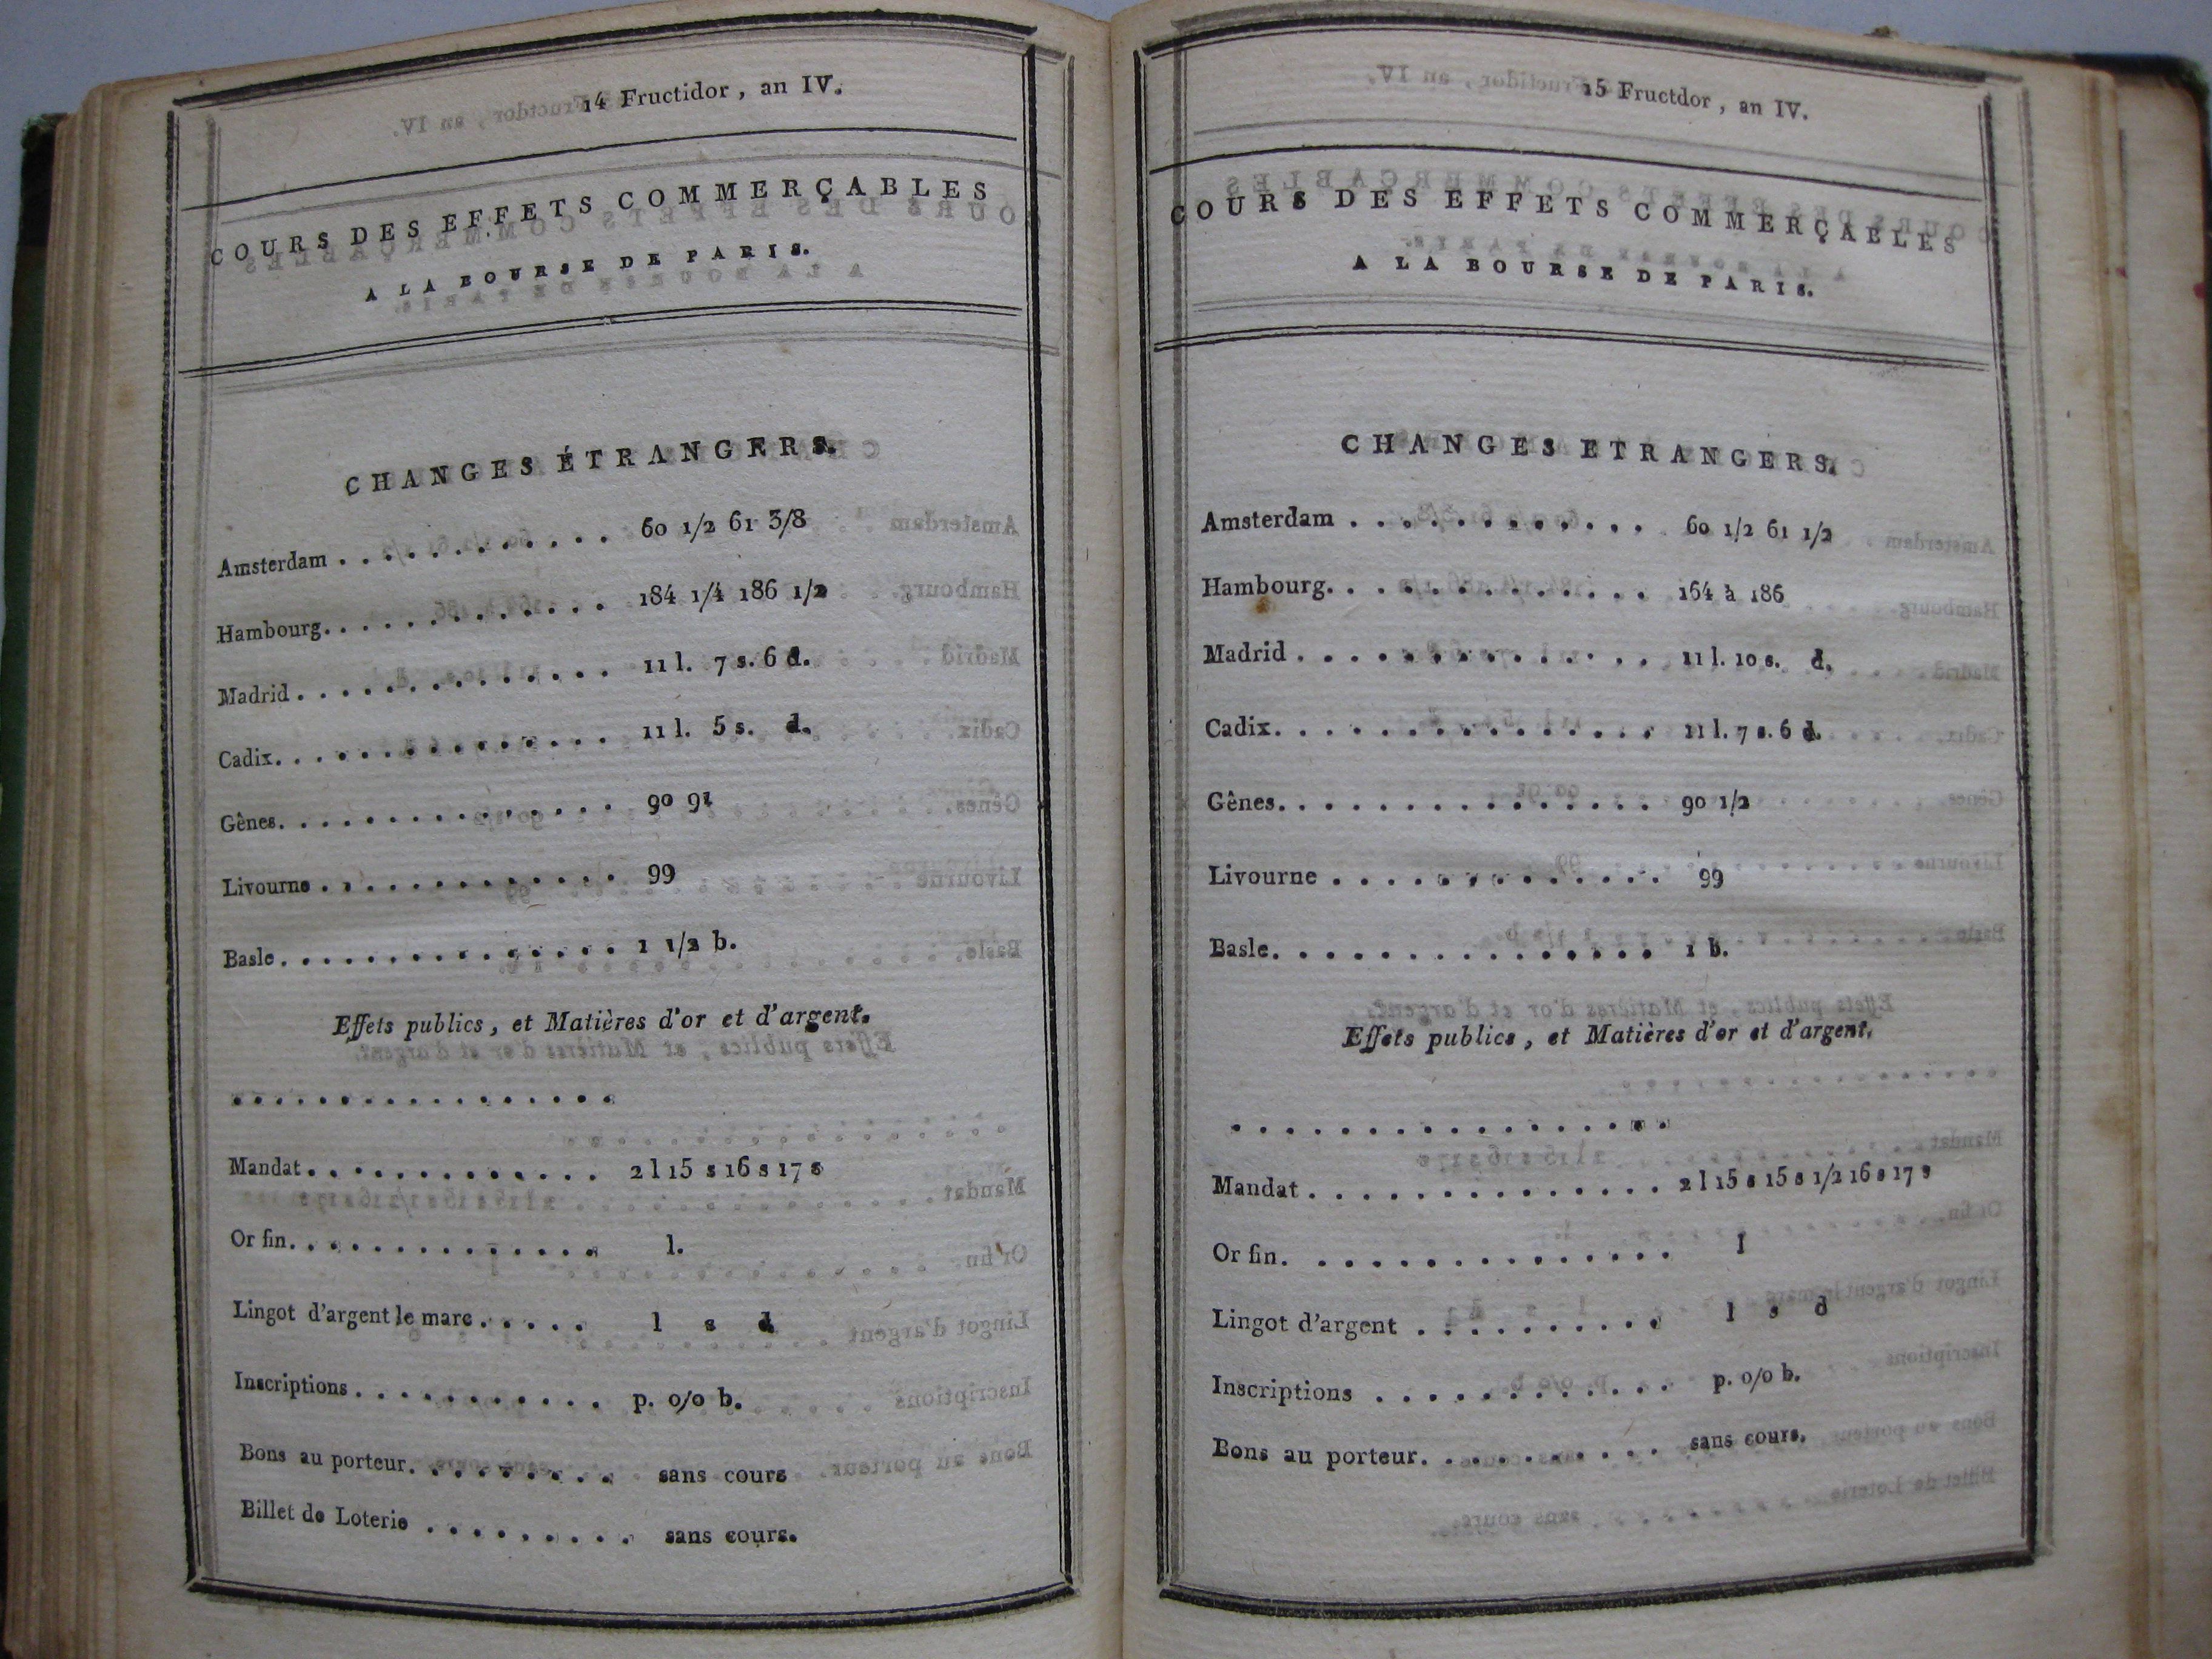 14 Fructidor, an IV.
COURS DES EFFETS COMMERÇABLES
A LA BOURSE DE PARIS.
CHANGES ÉTRANGERS.
Amsterdam . . . . . . . . . . . 60 1/2 61 3/8
Hambourg. . . . . . . . . . . . 184 1/4 186 1/2
Madrid . . . . . . . . . . . . . 11 l. 7 s. 6 d.
Cadix. . . . . . . . . . . . . . 11 l. 5 s. d.
Gênes. . . . . . . . . . . . . . 90 91
Livourne . . . . . . . . . . . . 99
Basle . . . . . . . . . . . . . . 1 1/2 b.
Effets publics, et Matières d'or et d'argent.
. . . . . . . . . . . . . . . . .
Mandat . . . . . . . . . . . . . 2 l 15 s 16 s 17 s
Or fin. . . . . . . . . . . . . . l.
Lingot d'argent le marc . . . . . l s d
Inscriptions . . . . . . . . . . . p. o/o b.
Bons au porteur. . . . . . . . . sans cours
Billet de Loterie . . . . . . . . . sans cours.
15 Fructdor, an IV.
COURS DES EFFETS COMMERÇABLES
A LA BOURSE DE PARIS.
CHANGES ETRANGERS.
Amsterdam . . . . . . . . . . . . 60 1/2 61 1/2
Hambourg. . . . . . . . . . . . . 164 à 186
Madrid . . . . . . . . . . . . . . 11 l. 10 s. d.
Cadix. . . . . . . . . . . . . . . 11 l. 7 s. 6 d.
Gênes. . . . . . . . . . . . . . . 90 1/2
Livourne . . . . . . . . . . . . . 99
Basle. . . . . . . . . . . . . . . 1 b.
Effets publics, et Matières d'or et d'argent.
. . . . . . . . . . . . . . . . .
Mandat . . . . . . . . . . . . . . 2 l 15 s 15 s 1/2 16 s 17 s
Or fin. . . . . . . . . . . . . . . l
Lingot d'argent . . . . . . . . . . l s d
Inscriptions . . . . . . . . . . . . p. o/o b.
Bons au porteur. . . . . . . . . . sans cours.